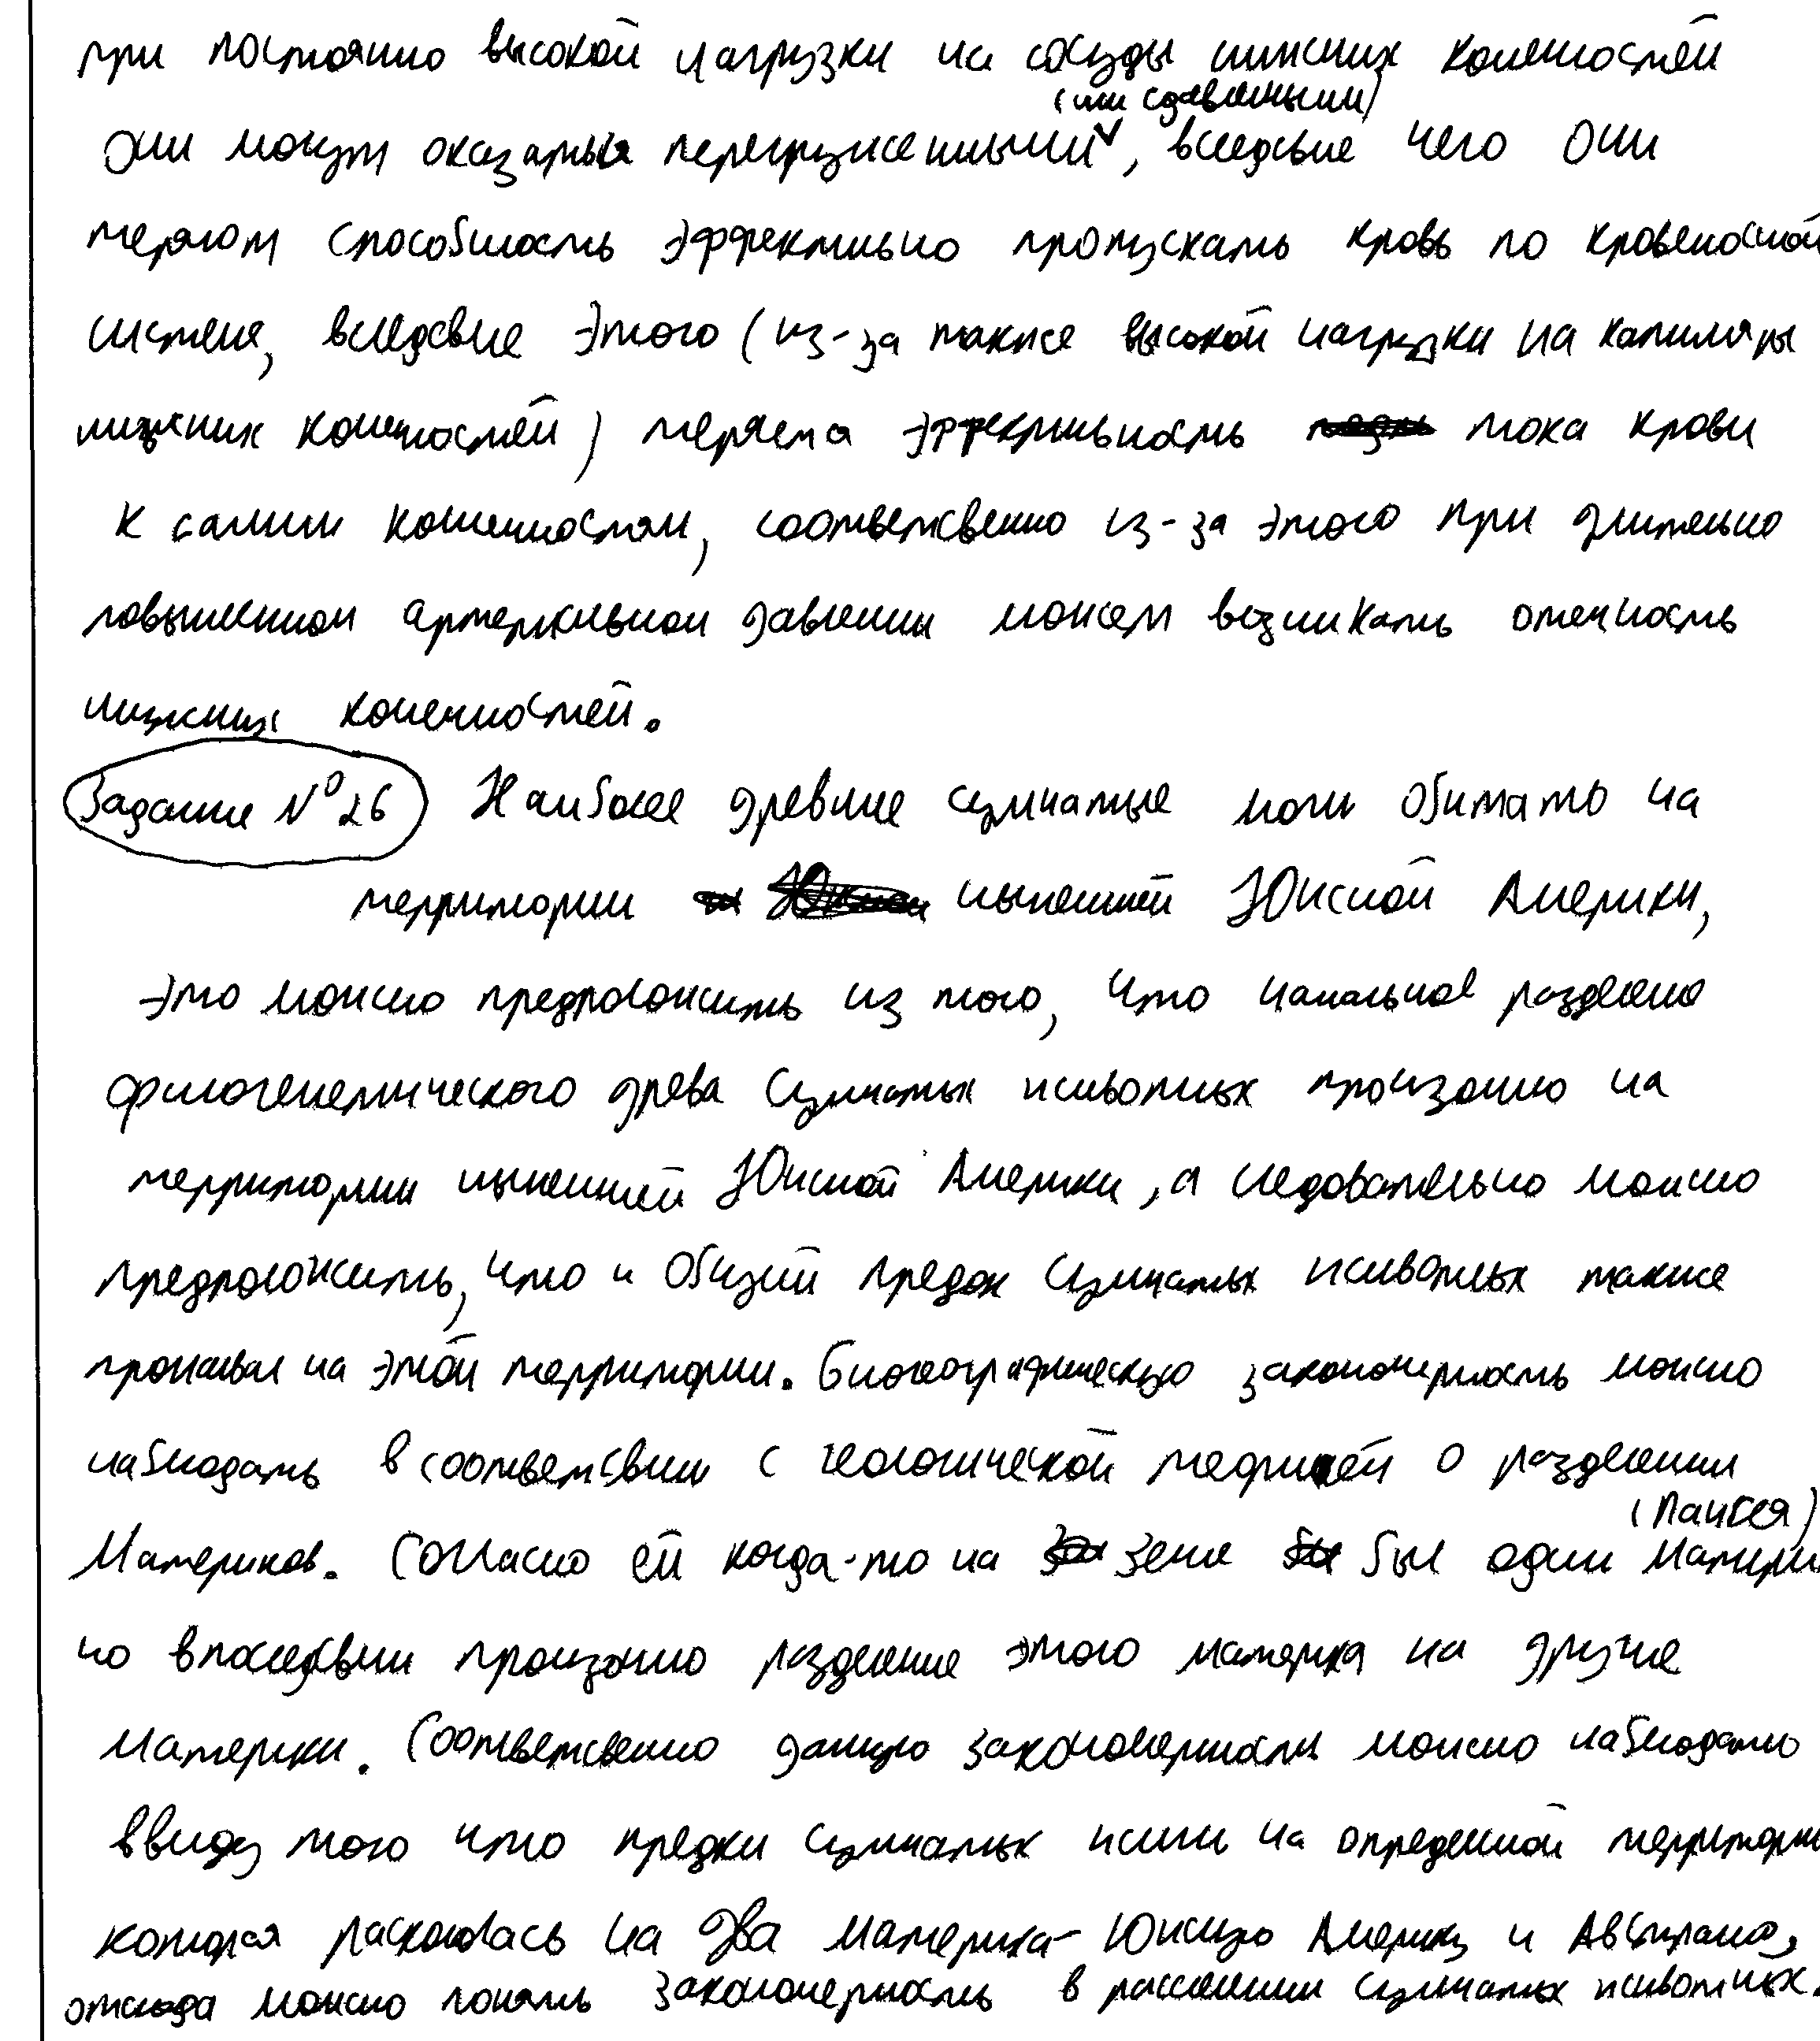 при постоянно высокой нагрузки на сосуды нижних конечностей
(или сдавленными)
они могут оказаться перегруженными, вследсвие чего они
теряют способность эффективно пропускать кровь по кровеносной
системе, вследсвие этого (из-за также высокой нагрузки на капиляры
нижних конечностей) теряется эффективность тока крови
к самим конечностям, соответсвенно из-за этого при длительно
повышенном артериальном давлении может возникать отечность
нижних конечностей.
Задание №26 Наиболее древние сумчатые могли обитать на
территории нынешней Южной Америки,
это можно предположить из того, что начальное разделение
филогенетического древа сумчатых животных произошло на
территории нынешней Южной Америки, а следовательно можно
предположить, что и общий предок сумчатых животных также
проживал на этой территории. Биогеографическую закономерность можно
наблюдать в соответсвии с геологической теорией о разделении
(Пангея)
материков. Согласно ей когда-то на земле был один материк
но впоследсвии произошло разделение этого материка на другие
материки. Соответственно данную закономерность можно наблюдать
ввиду того что предки сумчатых жили на определенной территории
которая раскололась на два материка - Южную Америку и Австралию,
отсюда можно понять закономерность в расселении сумчатых животных.